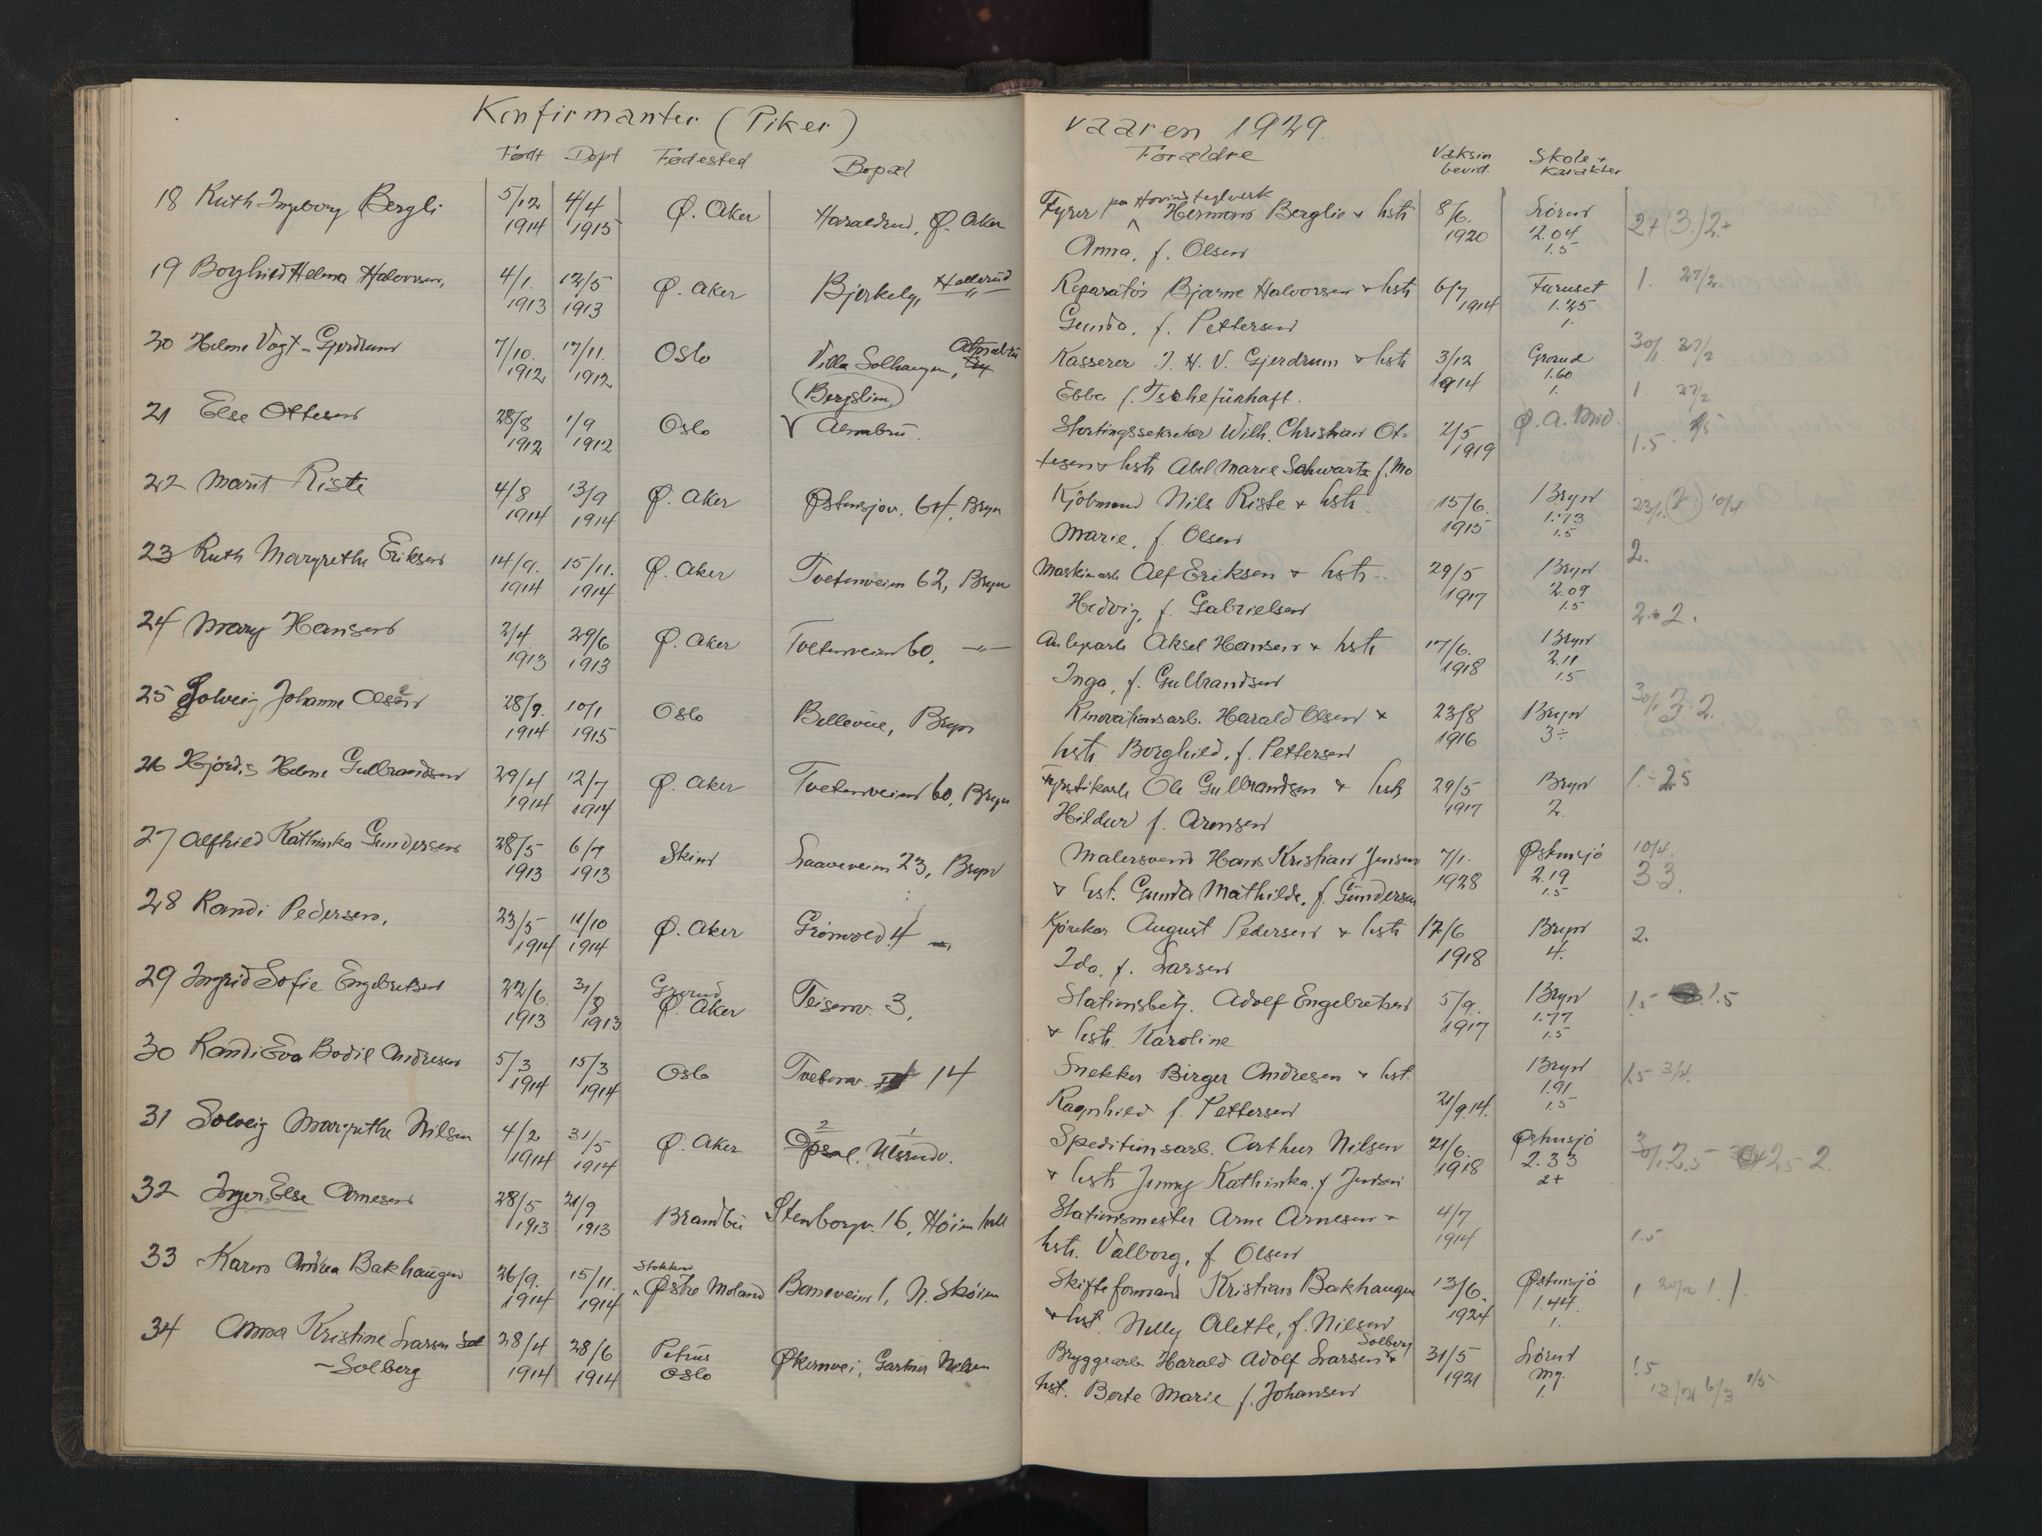 Konfirmanter (Piker) vaaren 1929.
Født Døpt Fødested Bopæl Forældre Vaksin bevid. Skole + Karakter
18 Ruth Ingeborg Bergli 5/12 1914 4/4 1915 Ø. Aker Haraldrud, Ø. Aker Fyrer paa Hovin teglverk Hermann Berglie + hst 8/6. 1920 Lørend 2.04 1.5 2+ (3.) 2.+
Anna, f. Olsen
19 Borghild Helena Halvorsen, 4/1. 1913 12/5 1913 Ø. Aker Bjerkely, Hellerud Reparatør Bjarne Halvorsen + hst 6/7 1914 Furuset 1.25 1. 1. 27/2.
Gunda, f. Pettersen
20 Helene Vogt-Gjerdrum 7/10. 1912 17/11. 1912 Oslo Villa Solhaugen, Alnabru Kasserer J. H. V. Gjerdrum + hst 3/12 1914 Grorud 1.60 1. 30/1. 27/2
(Bergslien) Ebba f. Tschefünhaft. 1. 27/2
21 Else Ottesen 28/8 1912 1/9 1912 Oslo Alnabru. Stortingssekretær Wilh. Christian Ot- 2/5 1919 Ø. A. Mid. 1.5
tesen + hst Abel Marie Schwartz f. Mo
22 Marit Riste 4/8 1914 13/9 1914 Ø. Aker Østensjøv. 64, Bryn Kjøbmand Nils Riste + hst. 15/6. 1915 Bryn 1.73 1.5 23/1. (2.) 10/4
Marie, f. Olsen
23 Ruth Margrethe Eriksen 14/9. 1914 15/11. 1914 Ø. Aker Tvetenveien 62, Bryn Maskinarb Alf Eriksen + hst. 29/5 1917 Bryn 2.09 1.5 2.
Hedvig, f. Gabrielsen
24 Mary Hansen 2/4 1913 29/6 1913 Ø. Aker Tvetenveien 60, —"— Anlegsarb Aksel Hansen + hst 17/6. 1918 Bryn 2.11 1.5 2.+2.
Inga, f. Gulbrandsen
25 Solveig Johanne Olsen 28/9. 1914 10/1 1915 Oslo Bellevue, Bryn Renovationsarb. Harald Olsen + 23/8 1916 Bryn 3÷ 30/1 3. 2.
hst. Borghild, f. Pettersen
26 Hjørdis Helene Gulbrandsen 29/4 1914 12/7 1914 Ø. Aker Tvetenveien 60, Bryn Fyrstikarb Ole Gulbrandsen + hst 29/5 1917 Bryn 2. 1.÷ 2.5
Hildur f. Arensen
27 Alfhild Kathinka Gundersen 28/5 1913 6/7 1913 Skien Laaveveien 23, Bryn Malersvend Hans Kristian Jensen 7/1. 1928 Østensjö 2.19 1.5 10/4. 3.3.
+ hst. Gunda Mathilde, f. Gundersen
28 Randi Pedersen, 23/5 1914 11/10 1914 Ø. Aker Grönvold 4 Kjørekar August Pedersen + hst 17/6 1918 Bryn 4. 2.
Ida, f. Larsen
29 Ingrid Sofie Engebretsen 22/6. 1913 31/8 1913 Grorud Ø. Aker Teisenv. 3, Stationsbetj. Adolf Engebretsen 5/9. 1917 Bryn 1.77 1.5 1.5 1.5
+ hst. Karoline
30 Randi Eva Bodil Andresen 5/3 1914 15/3 1914 Oslo Tvetenv. 14 Snekker Birger Andresen + hst. Bryn 1.91 1.5 1.5 3/4.
Ragnhild f. Pettersen 21/9 14.
31 Solveig Margrethe Nilsen 4/2 1914 31/5 1914 Ø. Aker Opsal, Ulsrudv. Speditionsarb. Arthur Nilsen 21/6. 1918 Østensjö 2.33 2+ 30/1. 2.5 2.5 2.
+ hst Jenny Kathinka f. Jensen
32 Inger Else Arnesen 28/5 1913 21/9 1913 Brandbu Stenborgv. 16, Høienhall Stationsmester Arne Arnesen + 4/7 1914 1.5
hst. Valborg, f. Olsen
33 Karen Andrea Bakhaugen 26/9. 1914 15/11. 1914 Stokken Østre Moland Baneveien 1, N. Skøien Skifteformand Kristian Bakhaugen 13/6. 1924 Østensjö 1.44. 1. 1 20/2 1. 1.
+ hst. Nelly Alette, f. Nilsen
34 Anna Kristine Larsen 28/4 1914 28/6 1914 Petrus Oslo Økernvei, Gartner Nilsen Bryggearb Harald Adolf Larsen Solberg + 31/5 1921 Lørend Mg. 1. 1.5
-Solberg hst. Berte Marie f. Johansen 6/3 1/5